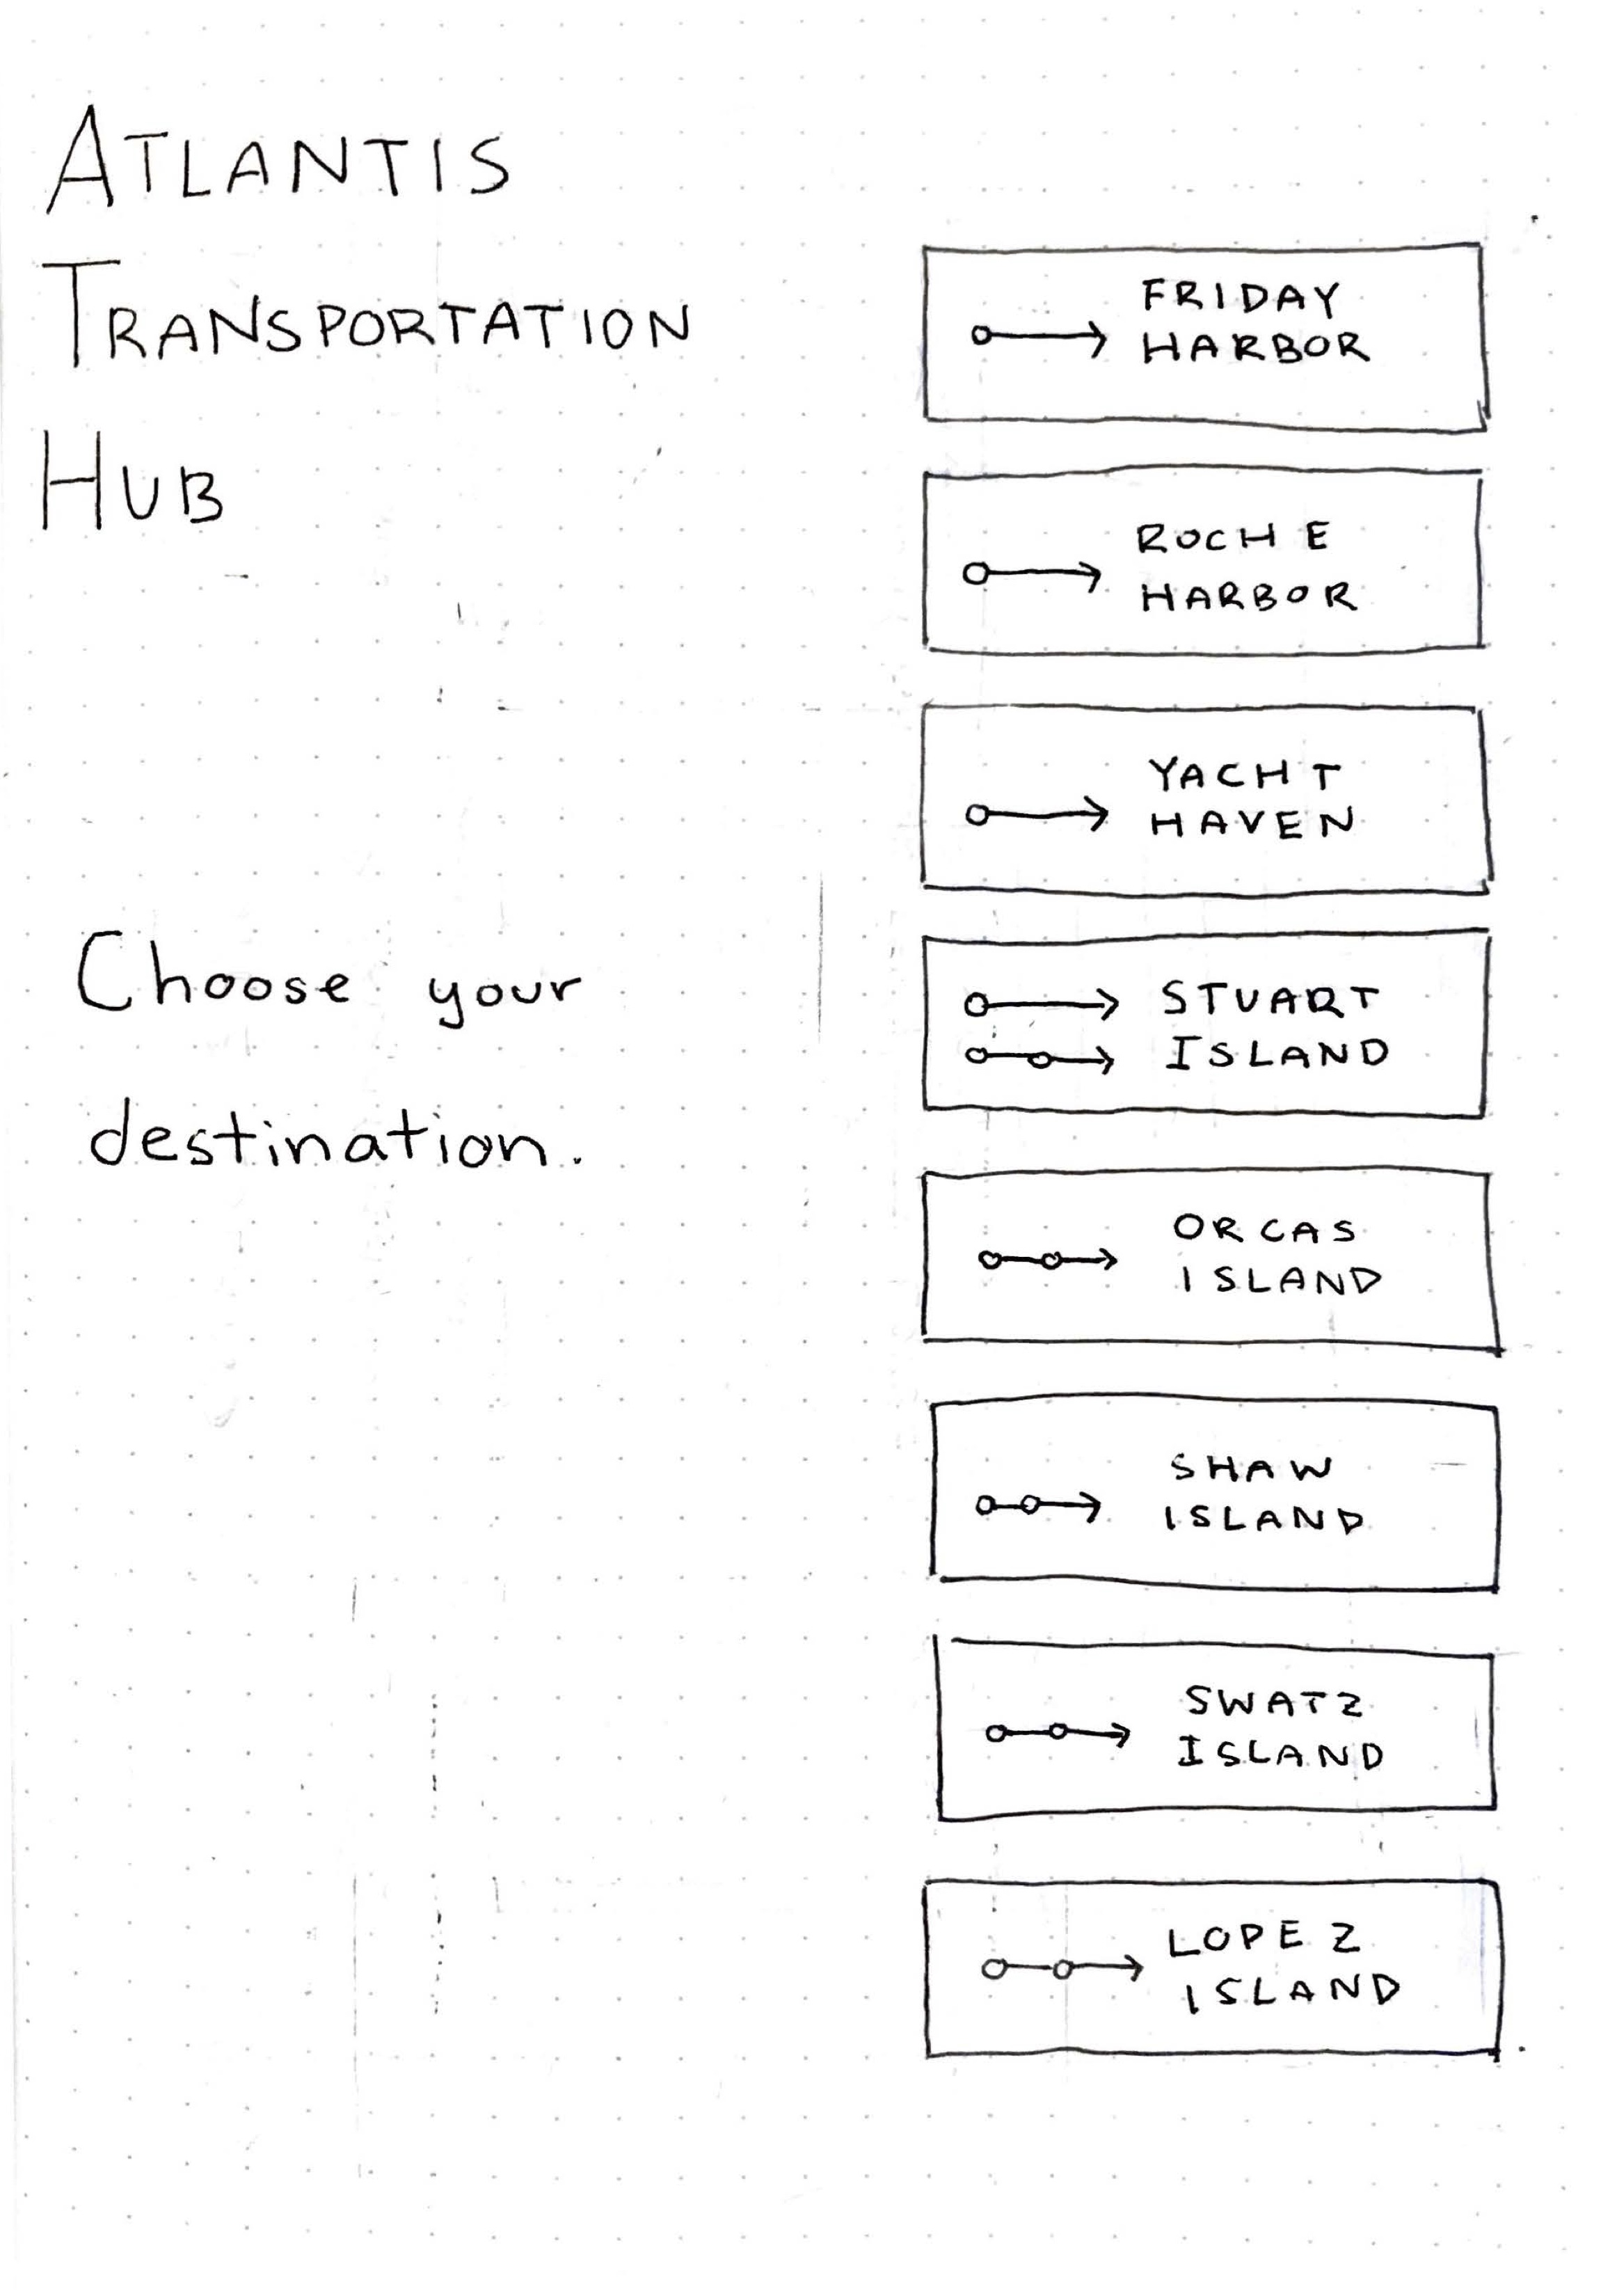 ATLANTIS
TRANSPORTATION
HUB
Choose your
destination.
FRIDAY
HARBOR
ROCHE
HARBOR
YACHT
HAVEN
STUART
ISLAND
ORCAS
ISLAND
SHAW
ISLAND
SWATZ
ISLAND
LOPEZ
ISLAND